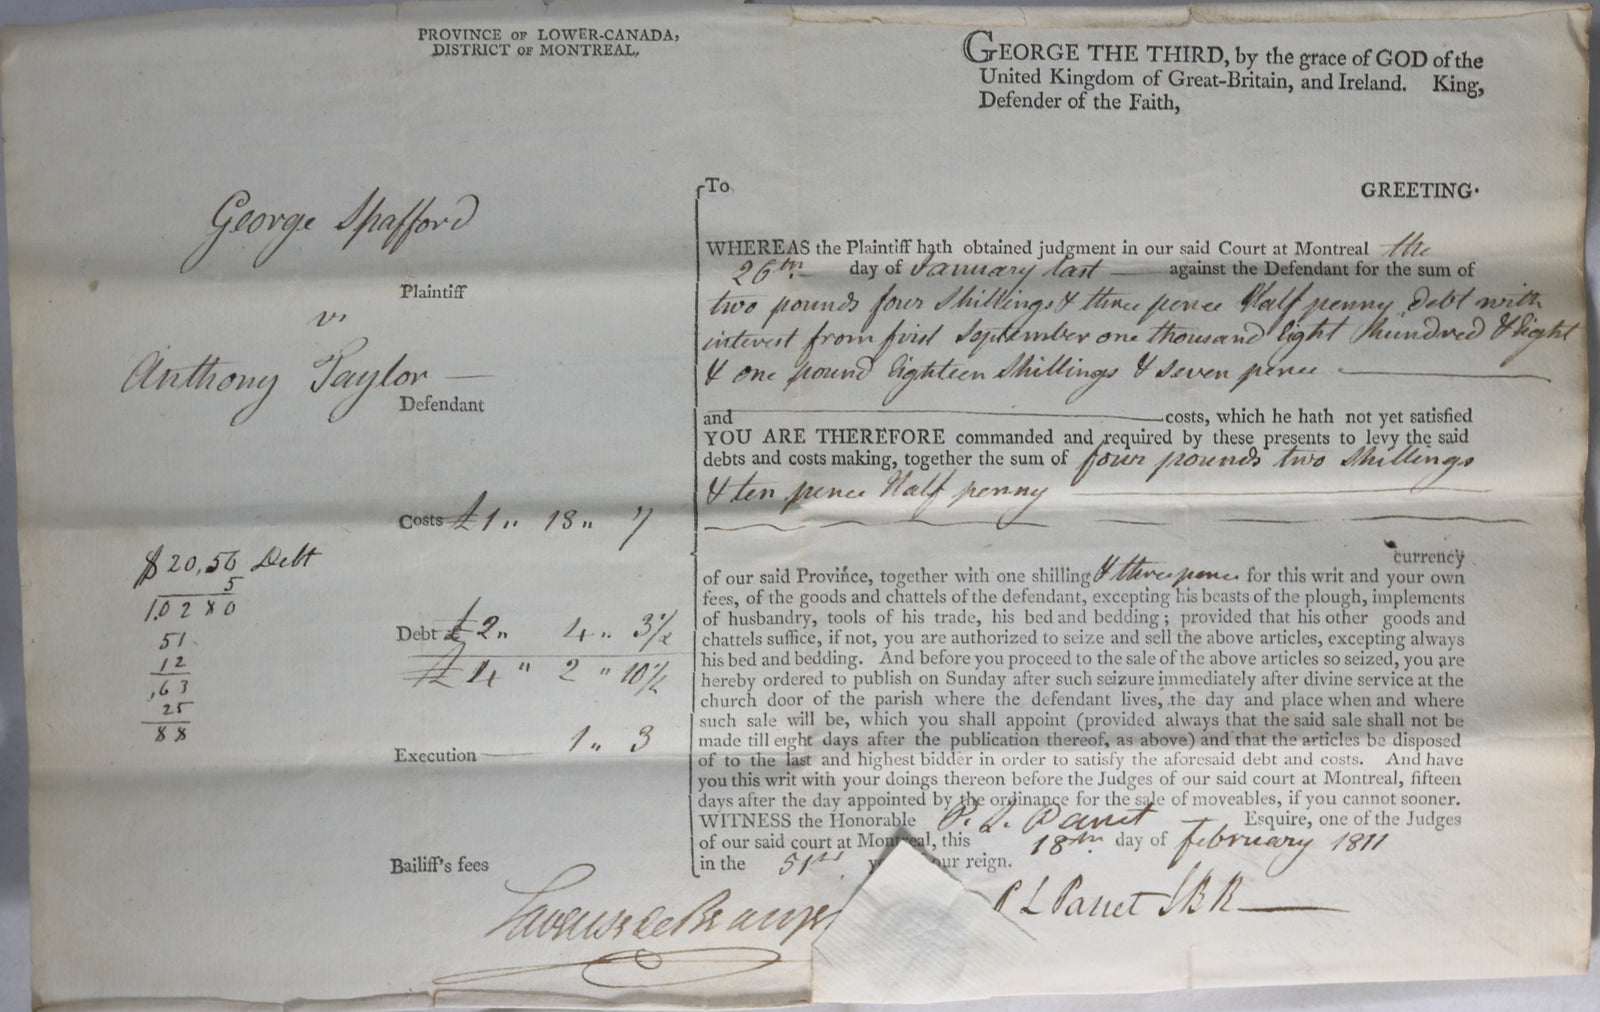 PROVINCE OF LOWER-CANADA,
DISTRICT OF MONTREAL.
GEORGE THE THIRD, by the grace of GOD of the
United Kingdom of Great-Britain, and Ireland. King,
Defender of the Faith,
George Spafford
Plaintiff
v.
Anthony Taylor
Defendant
Costs £1 " 18 " 7
$20,56 Debt
5
1.0280
51
12
,63
25
88
Debt £2 " 4 " 3½
£4 " 2 " 10½
Execution 1 " 3
Bailiff's fees
To
GREETING.
WHEREAS the Plaintiff hath obtained judgment in our said Court at Montreal the
26th day of January last against the Defendant for the sum of
two pounds four Shillings & three pence Half penny debt with
interest from first September one thousand Eight Hundred & Eight
& one pound Eighteen Shillings & seven pence
and costs, which he hath not yet satisfied
YOU ARE THEREFORE commanded and required by these presents to levy the said
debts and costs making, together the sum of four pounds two Shillings
& ten pence Half penny
currency
of our said Province, together with one shilling & three pence for this writ and your own
fees, of the goods and chattels of the defendant, excepting his beasts of the plough, implements
of husbandry, tools of his trade, his bed and bedding; provided that his other goods and
chattels suffice, if not, you are authorized to seize and sell the above articles, excepting always
his bed and bedding. And before you proceed to the sale of the above articles so seized, you are
hereby ordered to publish on Sunday after such seizure immediately after divine service at the
church door of the parish where the defendant lives, the day and place when and where
such sale will be, which you shall appoint (provided always that the said sale shall not be
made till eight days after the publication thereof, as above) and that the articles be disposed
of to the last and highest bidder in order to satisfy the aforesaid debt and costs. And have
you this writ with your doings thereon before the Judges of our said court at Montreal, fifteen
days after the day appointed by the ordinance for the sale of moveables, if you cannot sooner.
WITNESS the Honorable P. L. Panet Esquire, one of the Judges
of our said court at Montreal, this 18th day of February 1811
in the 51st our reign.
P L Panet J B R